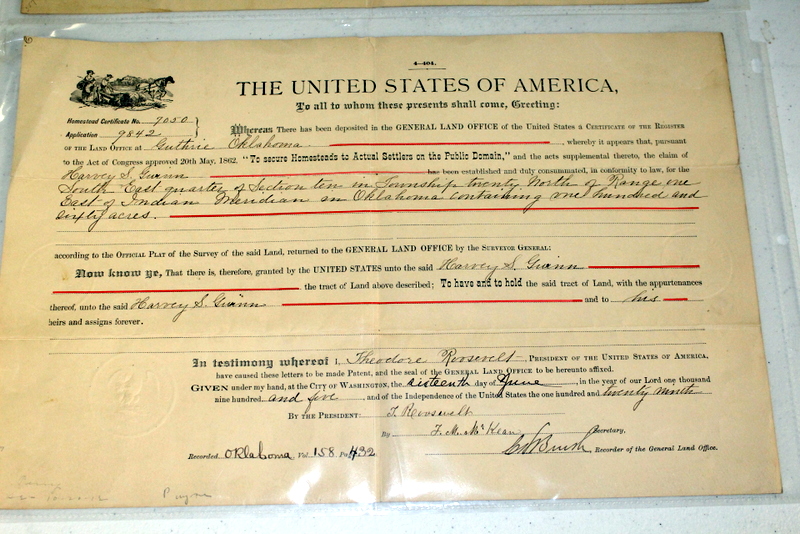 4—404.
THE UNITED STATES OF AMERICA,
To all to whom these presents shall come, Greeting:
Homestead Certificate No. 7050
Application 9842
Whereas There has been deposited in the GENERAL LAND OFFICE of the United States a CERTIFICATE OF THE REGISTER
OF THE LAND OFFICE AT Guthrie Oklahoma, whereby it appears that, pursuant
to the Act of Congress approved 20th May, 1862, "To secure Homesteads to Actual Settlers on the Public Domain," and the acts supplemental thereto, the claim of
Harvey S. Guinn has been established and duly consummated, in conformity to law, for the
South East quarter of Section ten in Township twenty North of Range one
East of Indian Meridian in Oklahoma containing one hundred and
sixty acres.
according to the OFFICIAL PLAT of the Survey of the said Land, returned to the GENERAL LAND OFFICE by the SURVEYOR GENERAL:
Now know ye, That there is, therefore, granted by the UNITED STATES unto the said Harvey S. Guinn
the tract of Land above described; To have and to hold the said tract of Land, with the appurtenances
thereof, unto the said Harvey S. Guinn and to his
heirs and assigns forever.
In testimony whereof I, Theodore Roosevelt, PRESIDENT OF THE UNITED STATES OF AMERICA,
have caused these letters to be made Patent, and the seal of the GENERAL LAND OFFICE to be hereunto affixed.
GIVEN under my hand, at the CITY OF WASHINGTON, the sixteenth day of June, in the year of our Lord one thousand
nine hundred and five, and of the Independence of the United States the one hundred and twenty ninth
BY THE PRESIDENT: T. Roosevelt
By F. M. McKean Secretary,
Recorded Oklahoma Vol. 158 Pa. 432
C H Brush Recorder of the General Land Office.
Payne